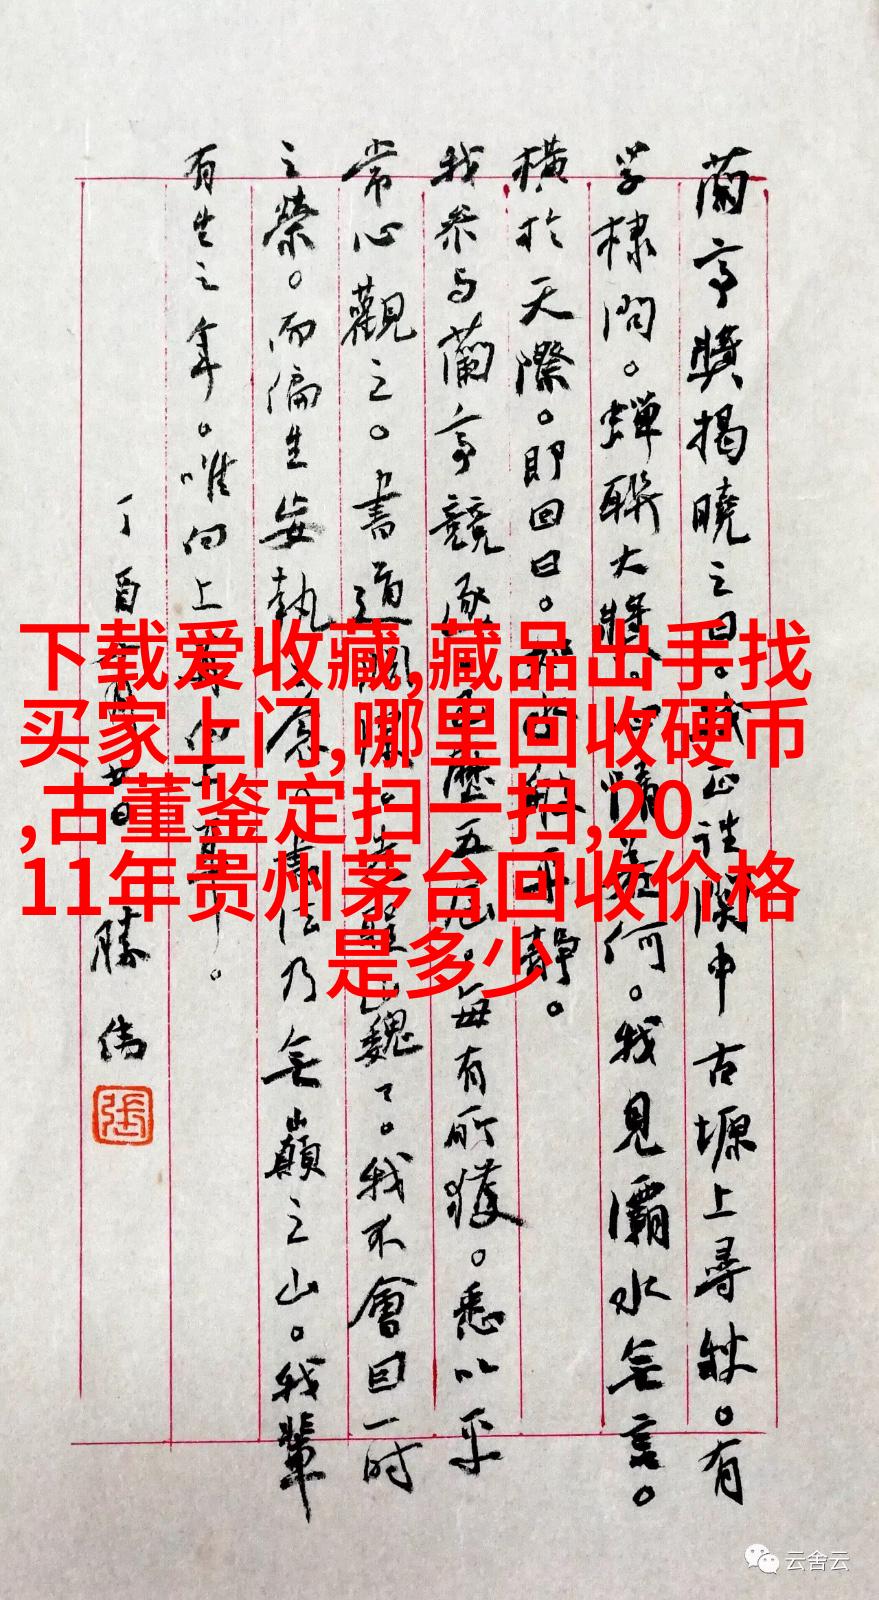 蘭亭獎揭曉之日。我正往關中古塬上尋秋。有
学棣問。蟬聯大獎。心情若何。我見灞水無言。
橫於天際。即回曰。平靜。
我参与蘭亭競逐歷五屆。每有所獲。悉以平
常心觀之。書道巍了。我不會因一时
之榮。而偏生妄執之念。書法乃無巔之山。我輩
有生之年。唯向上
丁酉勝偉
張
下载爱收藏,藏品出手找
买家上门,哪里回收硬币
,古董鉴定扫一扫,20
11年贵州茅台回收价格
是多少
云舍云